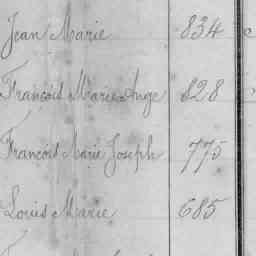 Jean Marie 834
François Marie Ange 828
François Marie Joseph 775
Louis Marie 685